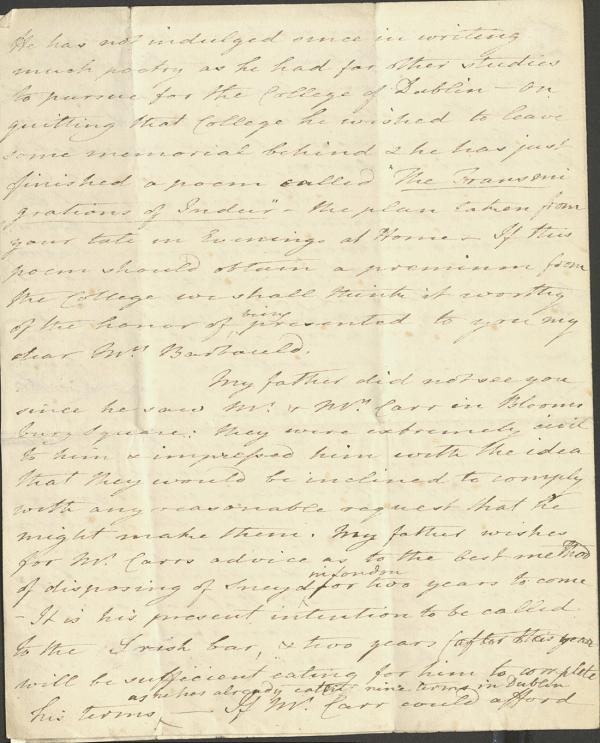 He has not indulged since in writing
much poetry as he had far other studies
to pursue for the College of Dublin - On
quitting that College he wished to leave
some memorial behind & he has just
finished a poem called "The Transmi
grations of Indur" - the plan taken from
your tale in Evenings at Home - If this
poem should obtain a premium from
the College we shall think it worthy
of the honor of being presented to you my
dear Mrs Barbauld.
My father did not see you
since he saw Mr. & Mrs Carr in Blooms
bury Square: they were extremely civil
to him & impressed him with the idea
that they would be inclined to comply
with any reasonable request that he
might make them. My father wishes
for Mr. Carrs advice as to the best method
of disposing of Sneyd in London for two years to come
- It is his present intention to be called
to the Irish bar, & two years (after this year
will be sufficient eating for him to complete
his terms as he has already eaten nine terms in Dublin - If Mr. Carr could afford